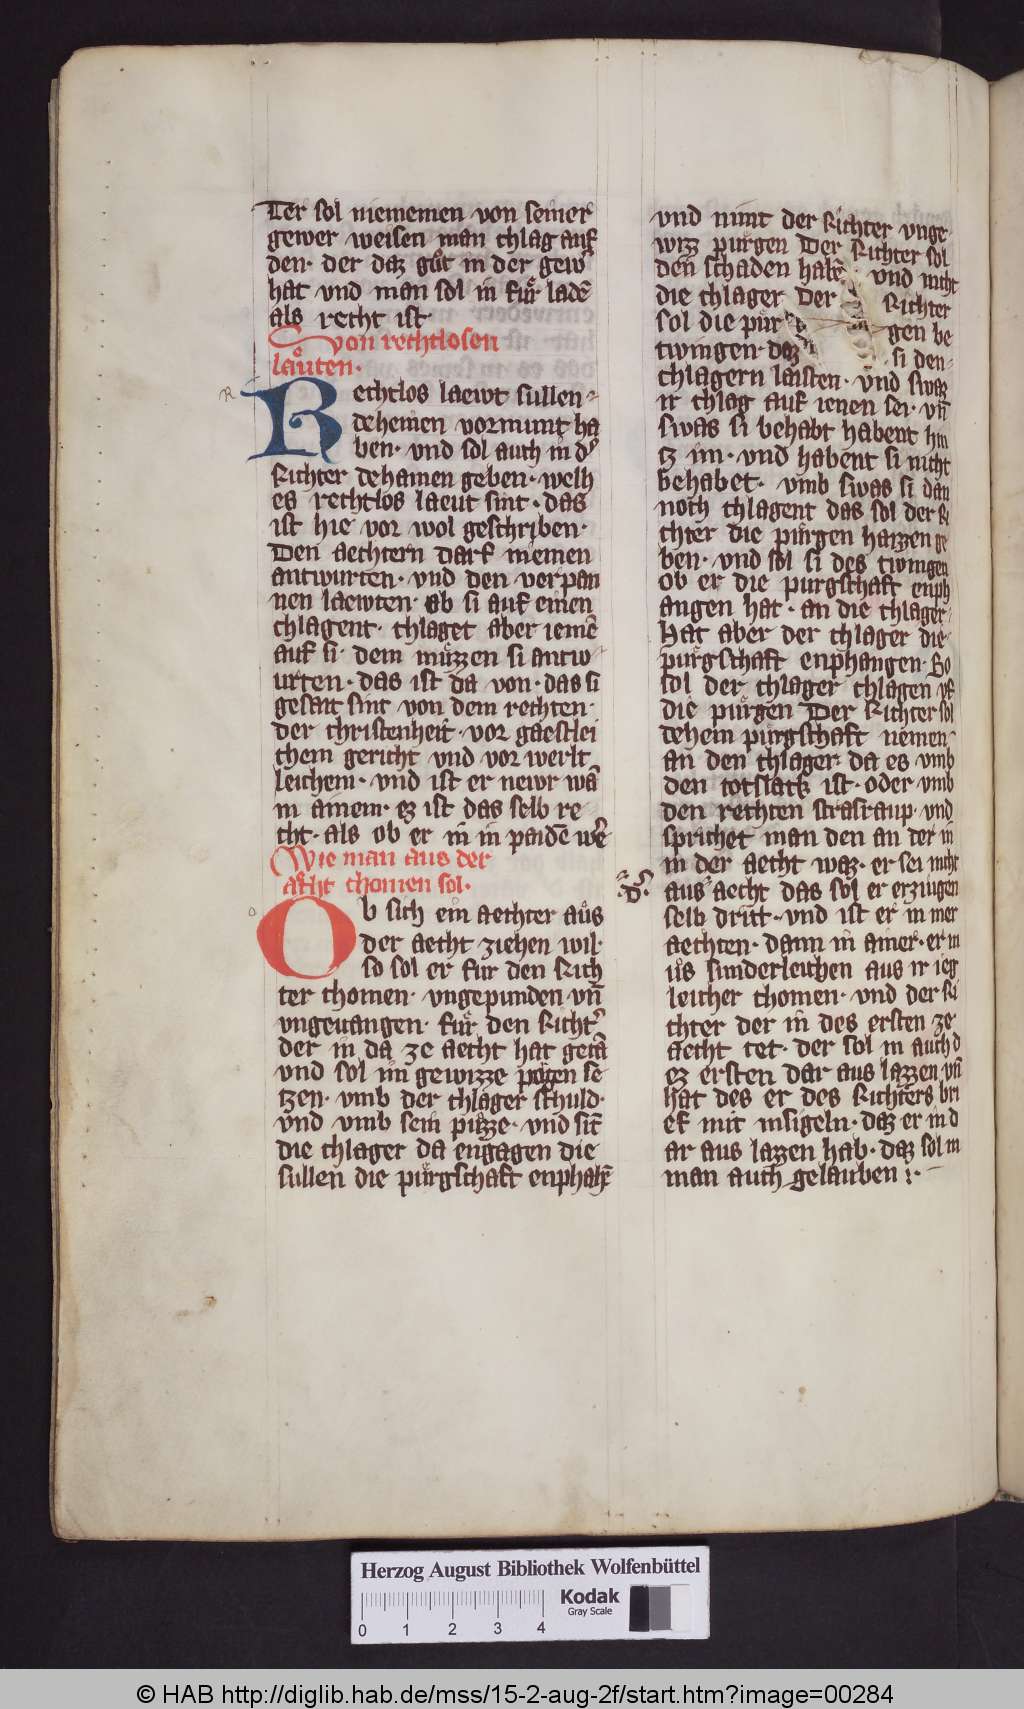 Ter sol niememen von seiner
gewer weisen man chlag auf
den· der daz guͦt in der gew͛
hat vnd man sol in fuͤr ladē
als recht ist·
Von rechtlosen
laͤuten·
R
Rechtlos laewt sullen
deheinen vormunt ha
ben· vnd sol auch in d͛
Richter dehainen geben· welh
es rechtlos laeut sint· das
ist hie vor wol geschriben·
Den aechtern darf niemen
antwurten· vnd den verpan
nen laewten· ob si auf einen
chlagent· chlaget aber iemē
auf si· dem muͤzzen si antw
urten· das ist da von· das si
gesatt sint von dem rechten·
der christenheit· vor gaestlei
chem gericht vnd vor werlt
leichem· vnd ist er newr wā
in ainem· ez ist das selb re
cht· als ob er in in paidē we͛
Wie man aus der
aͤcht chomen sol·
o
Ob sich ein aechter auͤs
der aecht ziehen wil·
so sol er fur den Rich
ter chomen· vngepunden vn̄
vngeuangen· fuͤr den Richt͛
der in da ze aecht hat getā
vnd sol im gewizze porgen se
tzen· vmb der chlager schuld·
vnd vmb sein puͤzze· vnd sit̄
die chlager da engagen die
sullen die puͤrgschaft enphahē
vnd nimt der Richter vnge
wizz puͤrgen Der Richter sol
den schaden habē vnd nicht
die chlager Der Richter
sol die puͤr gen be
twingen· daz si den
chlagern laisten· vnd swaz
ir chlag auf ienen sei· vn̄
swas si behabt habent hin
tz im· vnd habent si nicht
behabet· vmb swas si dan
noch chlagent das sol der Ri
chter die puͤrgen haizzen ge
ben· vnd sol si des twingen
ob er die purgschaft enph
angen hat· an die chlager·
Hat aber der chlager die
puͤrgschaft enphangen· So
sol der chlager chlagen vf
die puͤrgen Der Richter sol
dehein puͤrgschaft nemen
an den chlager da es vmb
den totslack ist· oder vmb
den rechten strasraup· vnd
sprichet man den an der in
in der aecht waz· er sei nicht
aus aecht das sol er erziugen
selb dritt· vnd ist er in mer
aechten· dann in ainer· er m
uͤs sunderleichen aus ir ieg
leicher chomen· vnd der Ri
chter der in des ersten ze
aecht tet· der sol in auch d
ez ersten dar aus lazzen vn̄
hat des er des Richters bri
ef mit insigeln· daz er in d
ar aus lazzen hab· daz sol m
man auch gelauben
Herzog August Bibliothek Wolfenbüttel
0 1 2 3 4
Kodak
Gray Scale
© HAB http://diglib.hab.de/mss/15-2-aug-2f/start.htm?image=00284